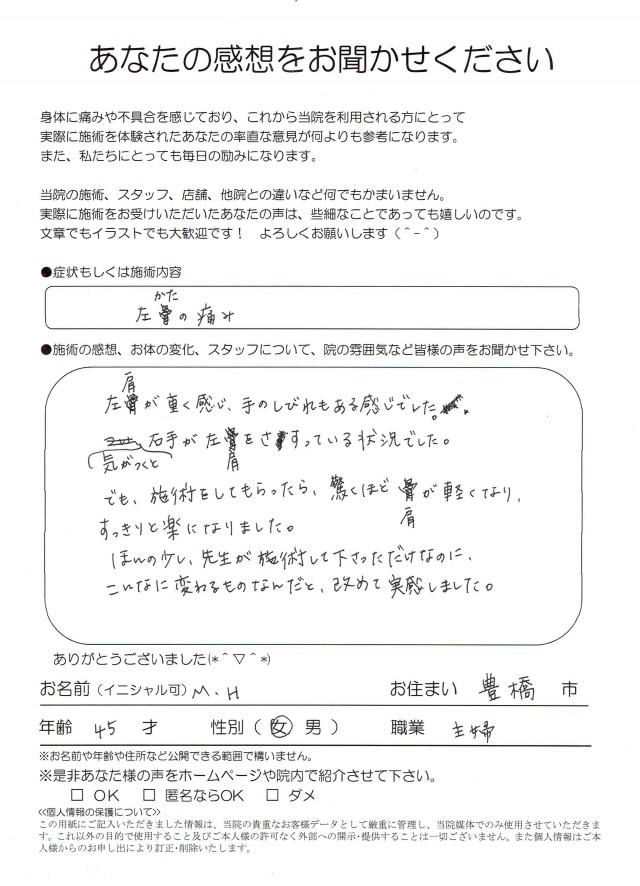 あなたの感想をお聞かせください
身体に痛みや不具合を感じており、これから当院を利用される方にとって
実際に施術を体験されたあなたの率直な意見が何よりも参考になります。
また、私たちにとっても毎日の励みになります。
当院の施術、スタッフ、店舗、他院との違いなど何でもかまいません。
実際に施術をお受けいただいたあなたの声は、些細なことであっても嬉しいのです。
文章でもイラストでも大歓迎です！　よろしくお願いします（＾－＾）
●症状もしくは施術内容
かた
左の痛み
●施術の感想、お体の変化、スタッフについて、院の雰囲気など皆様の声をお聞かせ下さい。
肩
左が重く感じ、手のしびれもある感じでした。
右手が左をさすっている状況でした。
気がつくと 肩
でも、施術をしてもらったら、驚くほどが軽くなり、
肩
すっきりと楽になりました。
ほんの少し、先生が施術して下さっただけなのに、
こんなに変わるものなんだと、改めて実感しました。
ありがとうございました(*＾▽＾*)
お名前（イニシャル可）M.H　お住まい　豊橋　市
年齢　45　才　性別（女　男）　職業　主婦
※お名前や年齢や住所など公開できる範囲で構いません。
※是非あなた様の声をホームページや院内で紹介させて下さい。
□ ＯＫ　□ 匿名ならOK　□ ダメ
≪個人情報の保護について≫
この用紙にご記入いただきました情報は、当院の貴重なお客様データとして厳重に管理し、当院媒体でのみ使用させていただきま
す。これ以外の目的で使用すること及びご本人様の許可なく外部への開示・提供することは一切ございません。また個人情報はご本
人様からのお申し出により訂正・削除いたします。